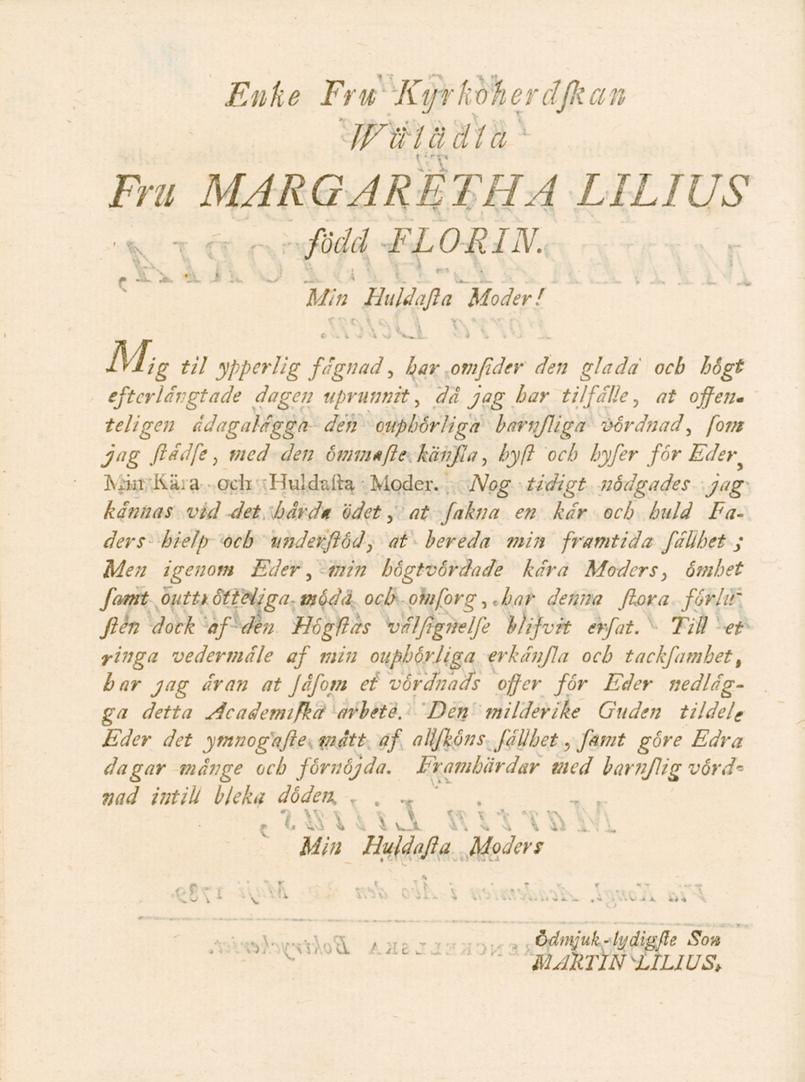 Enke Fru Kyrkoherdſkan
Wälädla
Fru MARGARETHA LILIUS
född FLORIN.
Min Huldaſta Moder!
Mig til ypperlig fägnad, har omſider den glada och högt
efterlängtade dagen uprunnit, då jag har tilfälle, at offen-
teligen ådagalägga den ouphörliga barnſliga vördnad, ſom
jag ſtädſe, med den ömmaſte känſla, hyſt och hyſer för Eder,
Min Kära och Huldaſta Moder. Nog tidigt nödgades jag
kännas vid det hårda ödet, at ſakna en kär och huld Fa-
ders hielp och underſtöd, at bereda min framtida ſällhet;
Men igenom Eder, min högtvördade kära Moders, ömhet
ſamt outtrötteliga möda och omſorg, har denna ſtora förlu-
ſten dock af den Högſtas välſignelſe blifvit erſat. Till et
ringa vedermäle af min ouphörliga erkänſla och tackſamhet,
har jag äran at ſåſom et vördnads offer för Eder nedläg-
ga detta Academiſka arbete. Den milderike Guden tildele
Eder det ymnogaſte mått af allſköns ſällhet, ſamt göre Edra
dagar månge och förnöjda. Framhärdar med barnſlig vörd-
nad intill bleka döden,
Min Huldaſta Moders
Ödmjuk-lydigſte Son
MARTIN LILIUS,